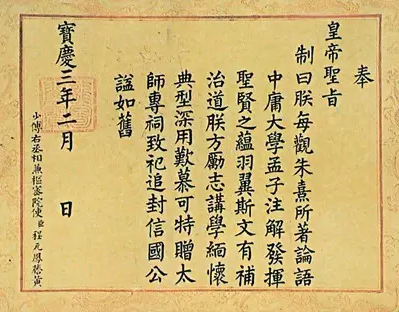 奉
皇帝聖旨
制曰朕每觀朱熹所著論語
中庸大學孟子注解發揮
聖賢之蘊羽翼斯文有補
治道朕方勵志講學緬懷
典型深用歎慕可特贈太
師專祠致祀追封信國公
諡如舊
寶慶三年二月　日
少傅右丞相兼樞密院使臣程元鳳